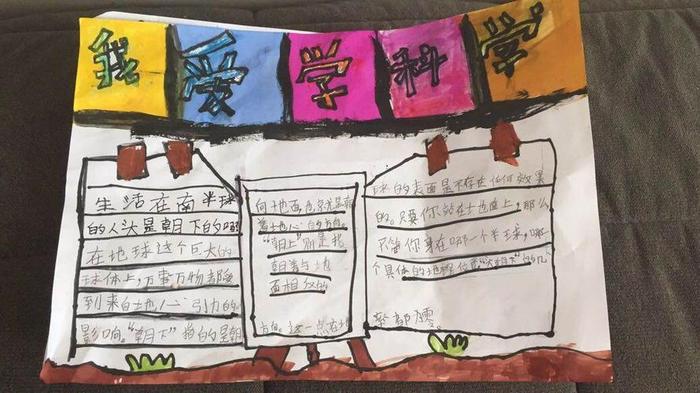 我爱学科学
生活在南半球
的人头是朝下的吗
在地球这个巨大的
球体上，万事万物都受
到来自地心引力的
影响。“朝下”指的是朝
向地面也就是朝
着地心的方向。
“朝上”则是指
朝着与地
面相反的
方向。这一点在地
球的表面是不存在任何效果
的。只要你站在地面上，那么
不管你身在哪一个半球，哪
个具体的地理位置
都